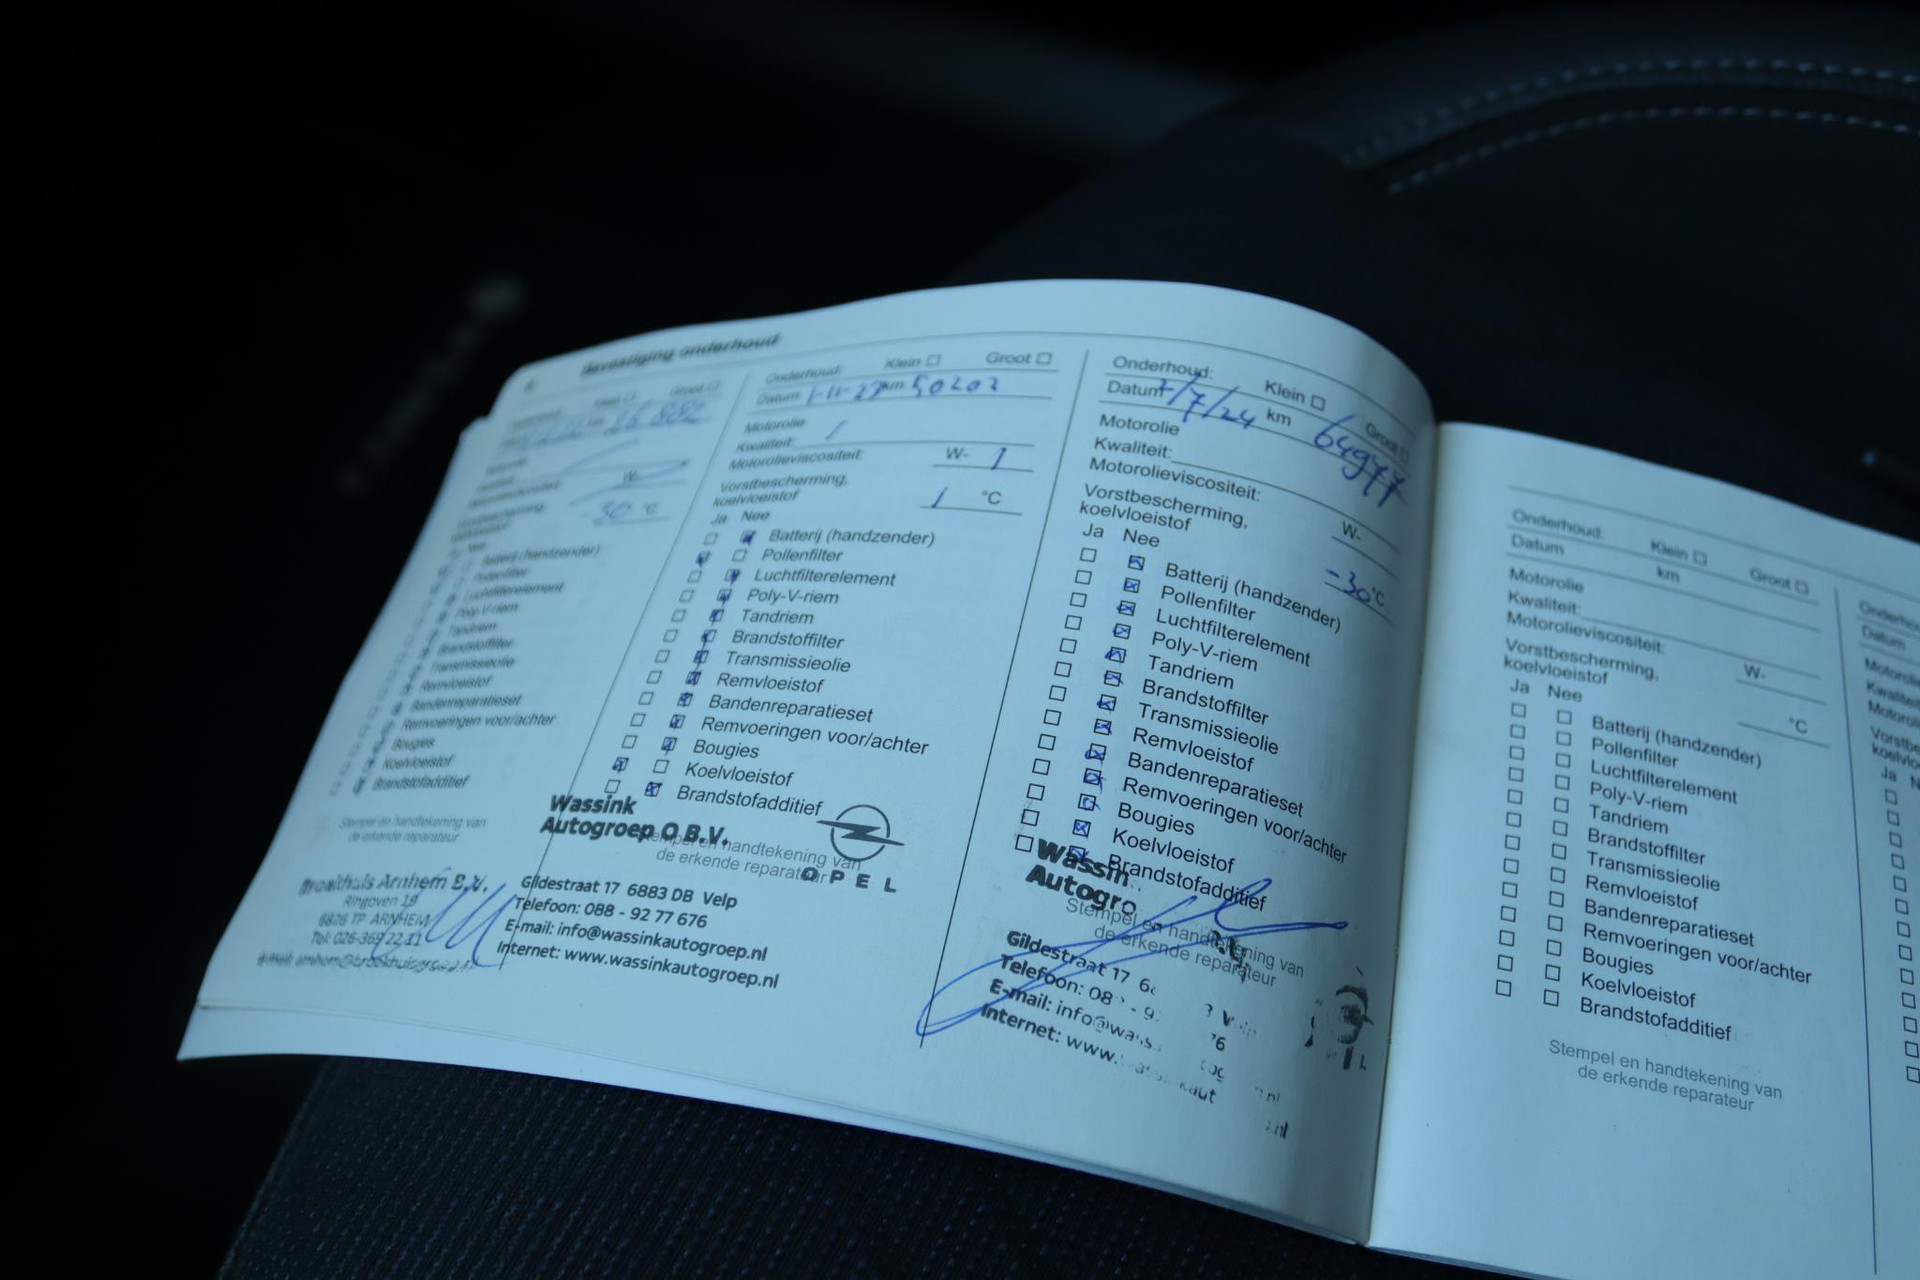 Bevestiging onderhoud
Klein Groot
26882
W-
-30 °C
Batterij (handzender)
Pollenfilter
Luchtfilterelement
Poly-V-riem
Tandriem
Brandstoffilter
Transmissieolie
Remvloeistof
Bandenreparatieset
Remvoeringen voor/achter
Bougies
Koelvloeistof
Brandstofadditief
Stempel en handtekening van
de erkende reparateur
Broekhuis Arnhem B.V.
Ringoven 19
6826 TP ARNHEM
Tel: 026-369 22 11
Onderhoud: Klein Groot
Datum km 50202
Motorolie
Kwaliteit:
Motorolieviscositeit: W-
Vorstbescherming,
koelvloeistof °C
Ja Nee
Batterij (handzender)
Pollenfilter
Luchtfilterelement
Poly-V-riem
Tandriem
Brandstoffilter
Transmissieolie
Remvloeistof
Bandenreparatieset
Remvoeringen voor/achter
Bougies
Koelvloeistof
Brandstofadditief
Wassink
Autogroep O B.V.
Stempel en handtekening van
de erkende reparateur
OPEL
Gildestraat 17 6883 DB Velp
Telefoon: 088 - 92 77 676
E-mail: info@wassinkautogroep.nl
Internet: www.wassinkautogroep.nl
Onderhoud: Klein Groot
Datum 7/24 km 64977
Motorolie
Kwaliteit:
Motorolieviscositeit: W-
Vorstbescherming,
koelvloeistof -30 °C
Ja Nee
Batterij (handzender)
Pollenfilter
Luchtfilterelement
Poly-V-riem
Tandriem
Brandstoffilter
Transmissieolie
Remvloeistof
Bandenreparatieset
Remvoeringen voor/achter
Bougies
Koelvloeistof
Brandstofadditief
Wassin
Autogro
Stempel en handtekening van
de erkende reparateur
Gildestraat 17
Telefoon:
E-mail:
Internet:
Onderhoud: Klein Groot
Datum km
Motorolie
Kwaliteit:
Motorolieviscositeit: W-
Vorstbescherming,
koelvloeistof °C
Ja Nee
Batterij (handzender)
Pollenfilter
Luchtfilterelement
Poly-V-riem
Tandriem
Brandstoffilter
Transmissieolie
Remvloeistof
Bandenreparatieset
Remvoeringen voor/achter
Bougies
Koelvloeistof
Brandstofadditief
Stempel en handtekening van
de erkende reparateur
Datum
Ja